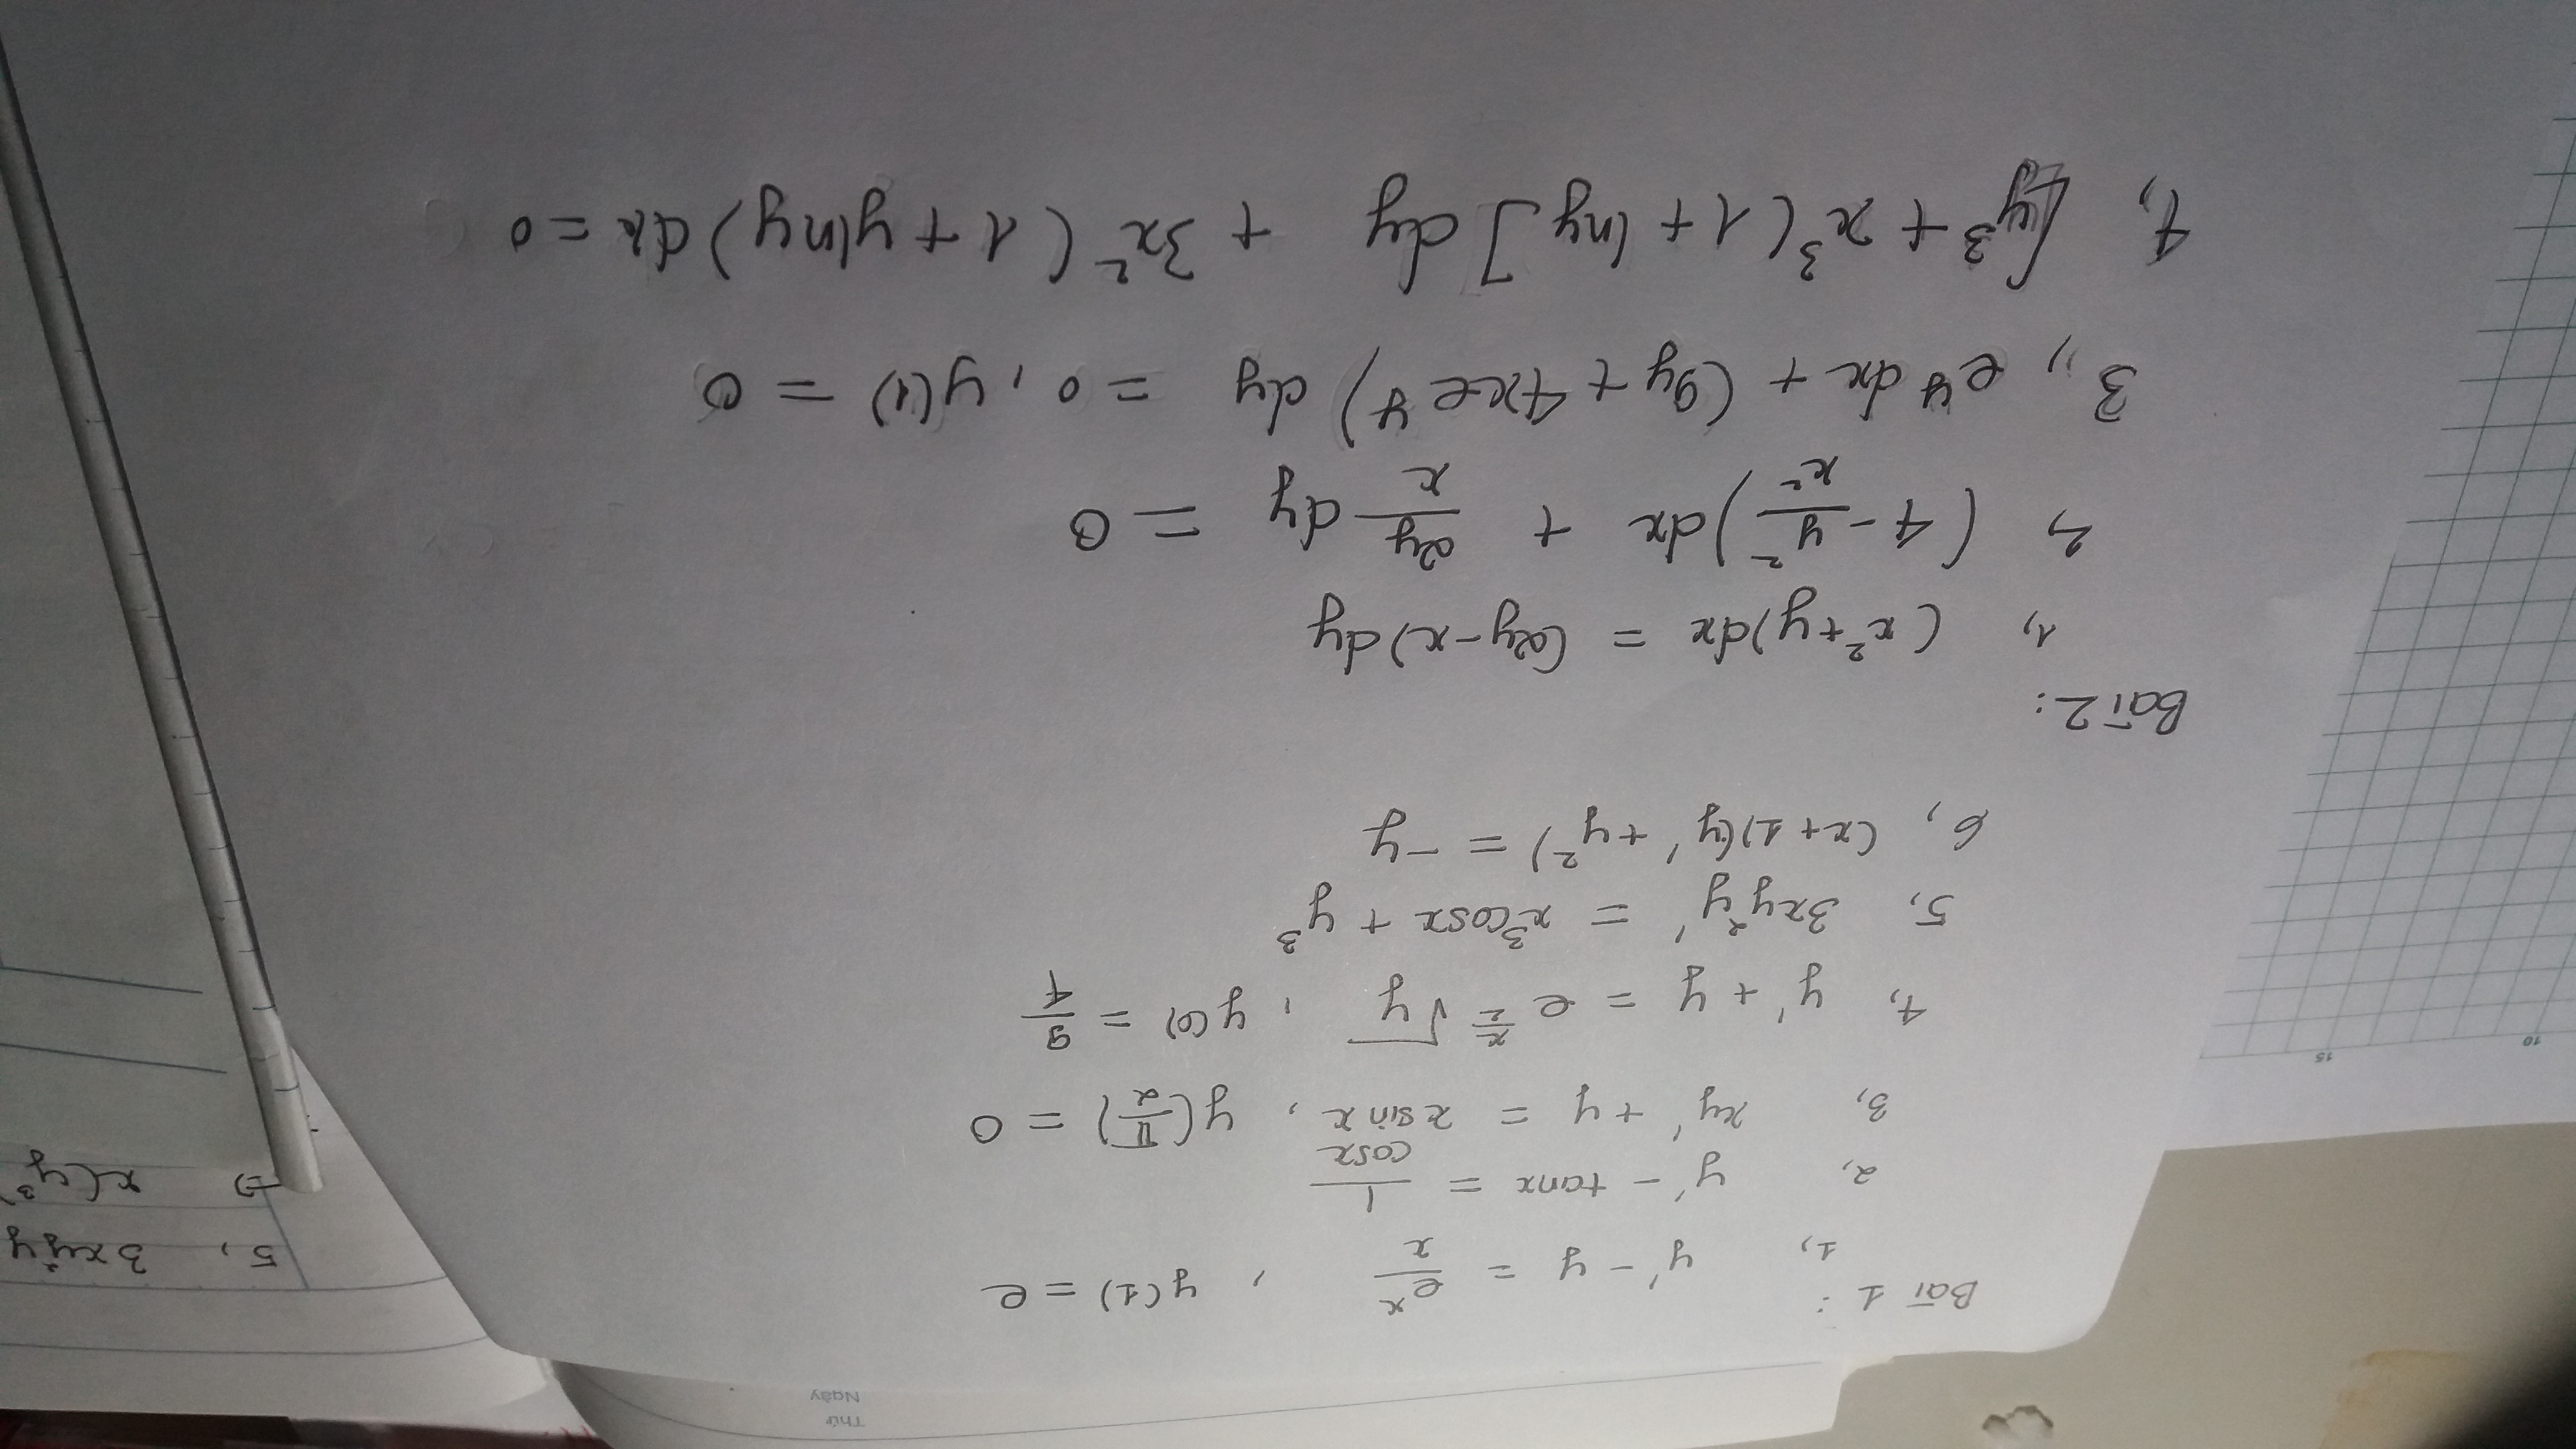 Thứ
Ngày
Bài 1 :
1, y' - y = e^x/x , y(1) = e
2, y' - tanx = 1/cosx
3, xy' + y = x sin x, y(π/2) = 0
4, y' + y = e^(x/2) √y , y(0) = 9/4
5, 3xy²y' = x³cosx + y³
6, (x+1)(y' + y²) = -y
Bài 2:
1, (x²+y)dx = (2y-x)dy
2, (4 - y²/x²)dx + 2y/x dy = 0
3,, e^y dx + (9y + 4xe^y) dy = 0, y(1) = 0
4, [y³ + x³(1 + lny] dy + 3x² (1 + ylny) dx = 0
10
15
5, 3xy²y
=> x(y³